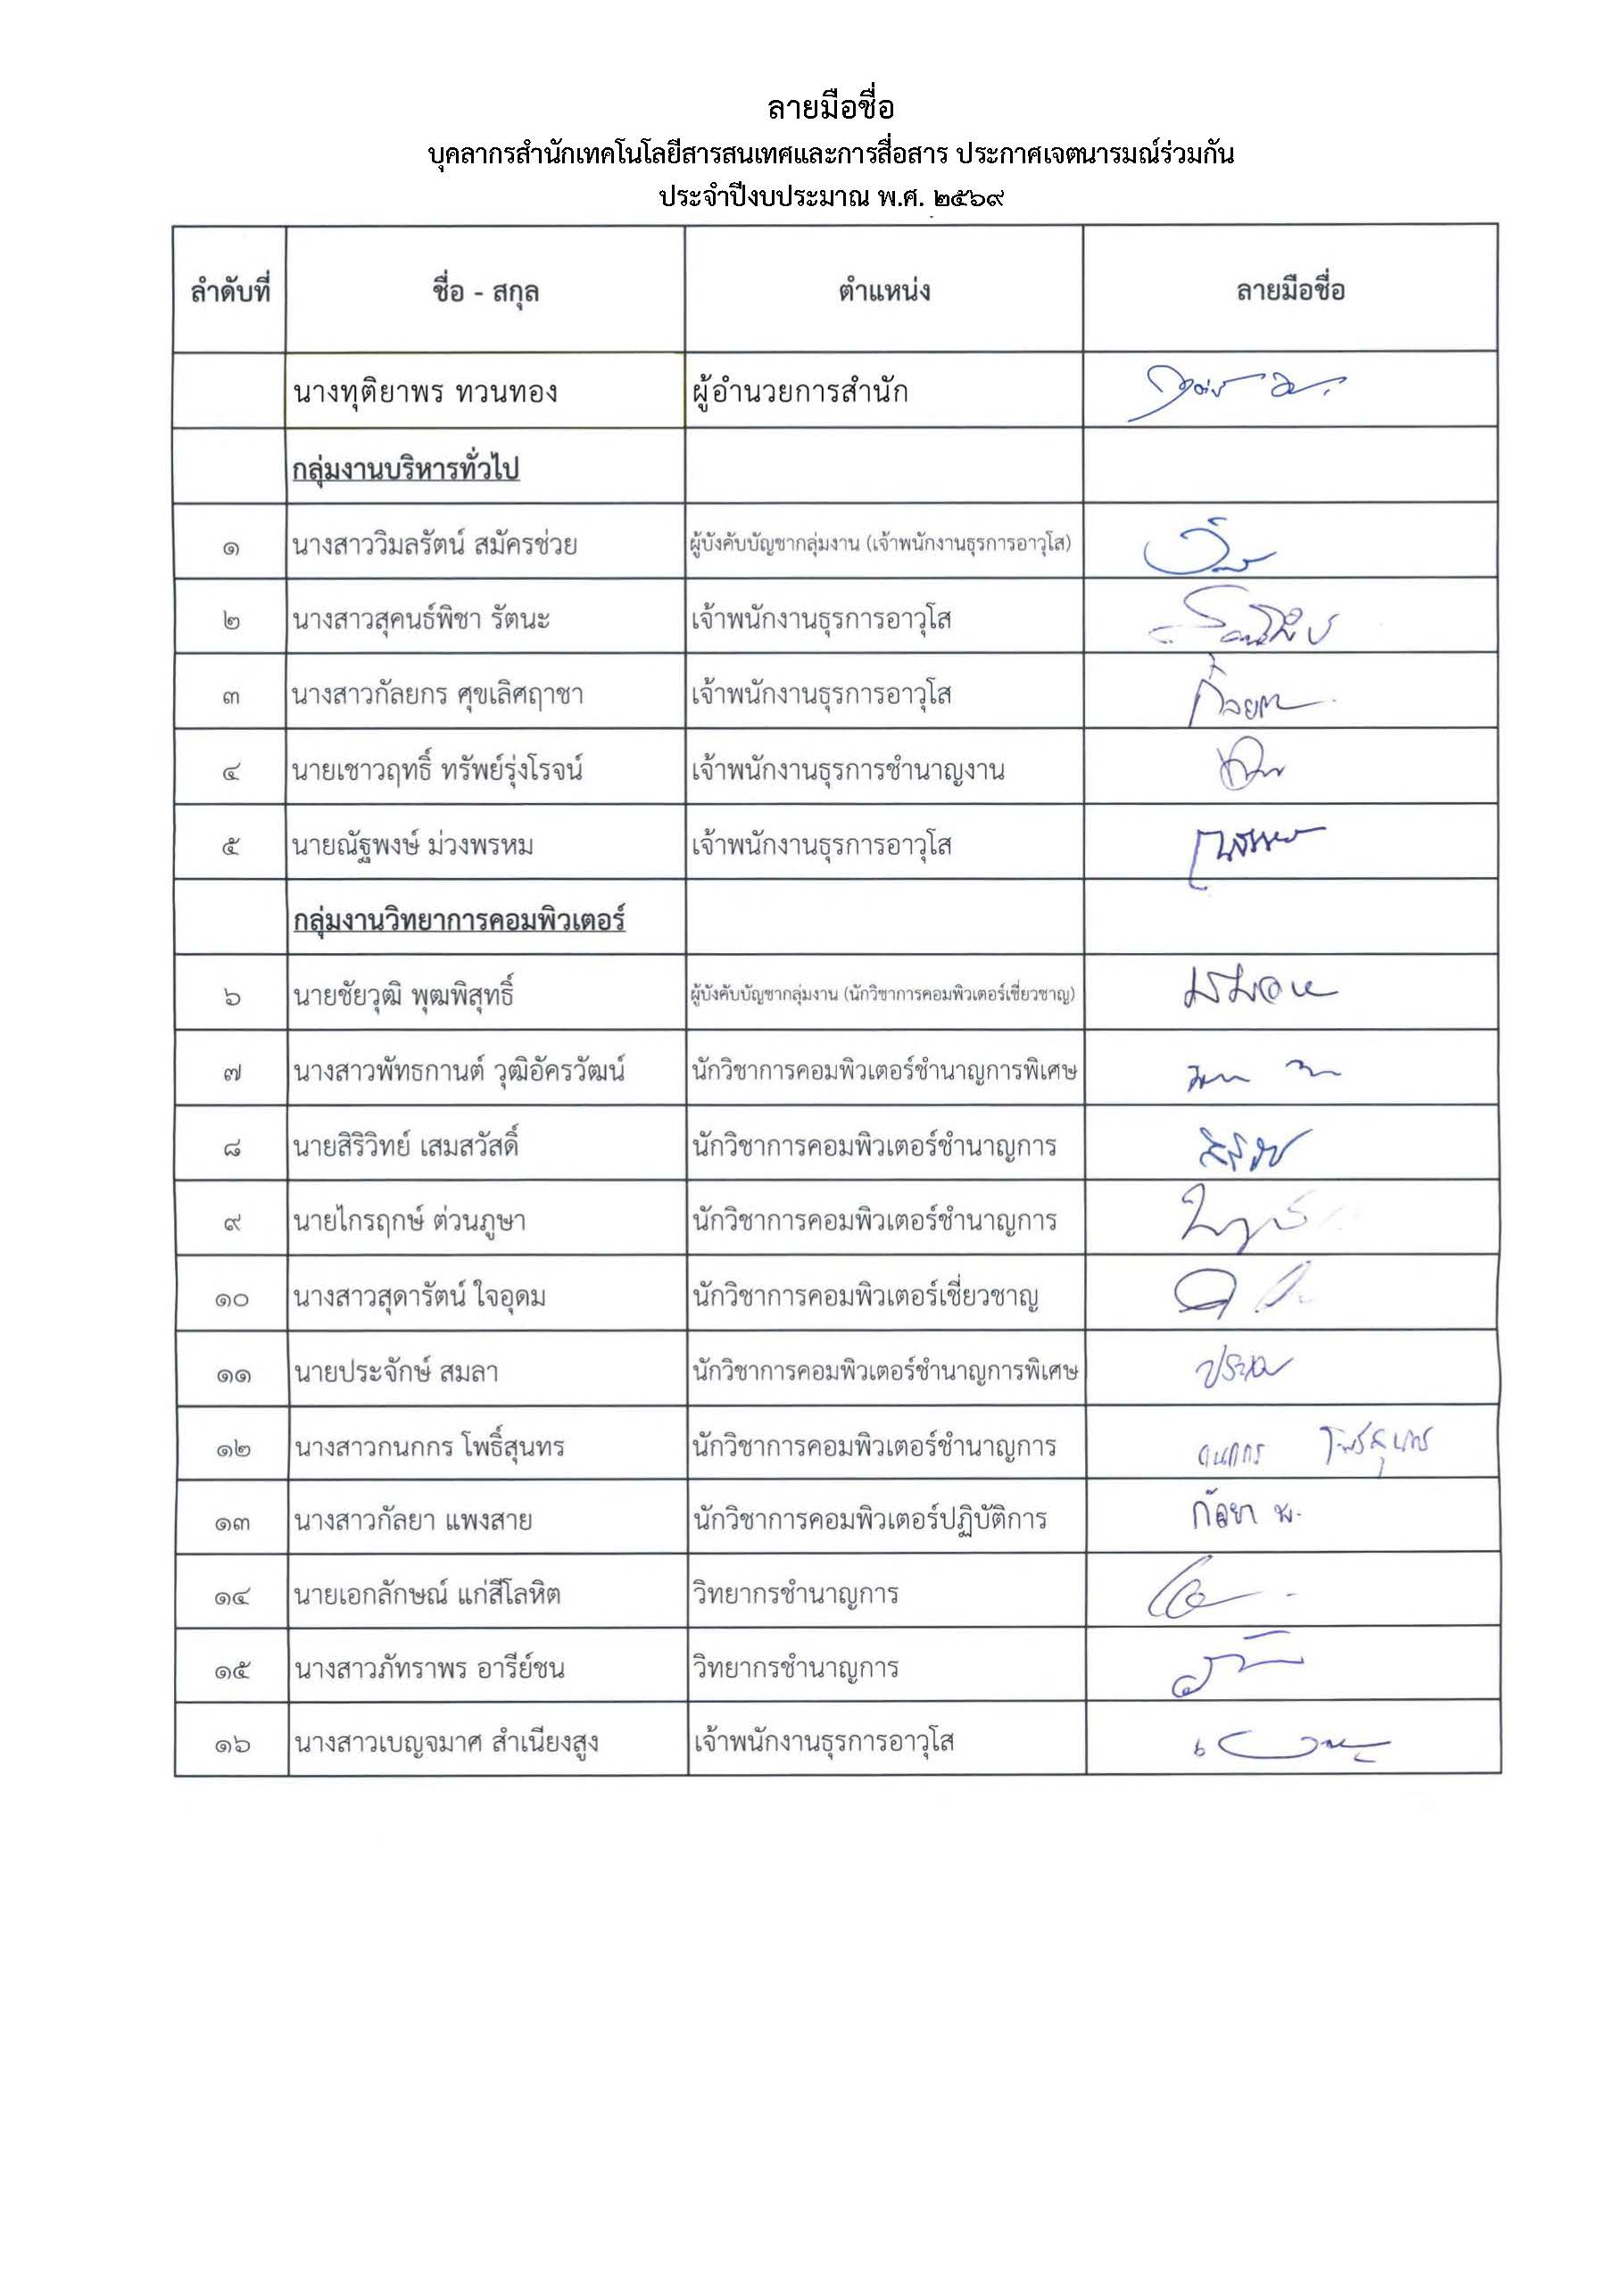 ลายมือชื่อ
บุคลากรสำนักเทคโนโลยีสารสนเทศและการสื่อสาร ประกาศเจตนารมณ์ร่วมกัน
ประจำปีงบประมาณ พ.ศ. ๒๕๖๙
ลำดับที่ ชื่อ - สกุล ตำแหน่ง ลายมือชื่อ
นางทุติยาพร ทวนทอง ผู้อำนวยการสำนัก
กลุ่มงานบริหารทั่วไป
๑ นางสาววิมลรัตน์ สมัครช่วย ผู้บังคับบัญชากลุ่มงาน (เจ้าพนักงานธุรการอาวุโส)
๒ นางสาวสุคนธ์พิชา รัตนะ เจ้าพนักงานธุรการอาวุโส
๓ นางสาวกัลยกร ศุขเลิศฤาชา เจ้าพนักงานธุรการอาวุโส
๔ นายเชาวฤทธิ์ ทรัพย์รุ่งโรจน์ เจ้าพนักงานธุรการชำนาญงาน
๕ นายณัฐพงษ์ ม่วงพรหม เจ้าพนักงานธุรการอาวุโส
กลุ่มงานวิทยาการคอมพิวเตอร์
๖ นายชัยวุฒิ พุฒพิสุทธิ์ ผู้บังคับบัญชากลุ่มงาน (นักวิชาการคอมพิวเตอร์เชี่ยวชาญ)
๗ นางสาวพัทธกานต์ วุฒิอัครวัฒน์ นักวิชาการคอมพิวเตอร์ชำนาญการพิเศษ
๘ นายสิริวิทย์ เสมสวัสดิ์ นักวิชาการคอมพิวเตอร์ชำนาญการ
๙ นายไกรฤกษ์ ต่วนภูษา นักวิชาการคอมพิวเตอร์ชำนาญการ
๑๐ นางสาวสุดารัตน์ ใจอุดม นักวิชาการคอมพิวเตอร์เชี่ยวชาญ
๑๑ นายประจักษ์ สมลา นักวิชาการคอมพิวเตอร์ชำนาญการพิเศษ
๑๒ นางสาวกนกกร โพธิ์สุนทร นักวิชาการคอมพิวเตอร์ชำนาญการ กนกกร โพธิ์สุนทร
๑๓ นางสาวกัลยา แพงสาย นักวิชาการคอมพิวเตอร์ปฏิบัติการ กัลยา พ.
๑๔ นายเอกลักษณ์ แก่สีโลหิต วิทยากรชำนาญการ
๑๕ นางสาวภัทราพร อารีย์ชน วิทยากรชำนาญการ
๑๖ นางสาวเบญจมาศ สำเนียงสูง เจ้าพนักงานธุรการอาวุโส